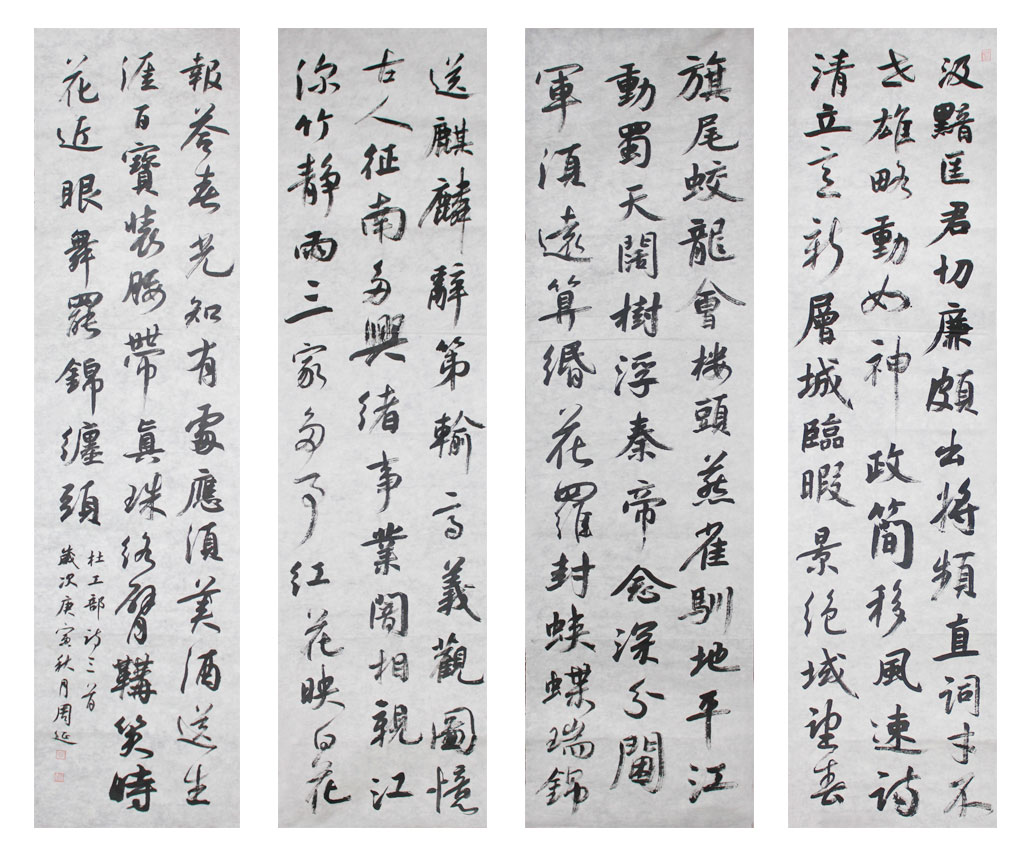 汲黯匡君切廉頗出將頻直詞才不
世雄略動如神政簡移風速詩
清立意新層城臨暇景絕域望春
旗尾蛟龍會楼頭燕雀馴地平江
動蜀天闊樹浮秦帝念深分閫
軍須遠算緡花羅封蛺蝶瑞錦
送麒麟辭第輸高義觀圖憶
古人征南多興緒事業闇相親江
深竹静兩三家多事红花映白花
報答春光知有處應須美酒送生
涯百寶裝腰帶真珠絡臂韝笑時
花近眼舞罷錦纏頭
杜工部詩三首
歲次庚寅秋月周延